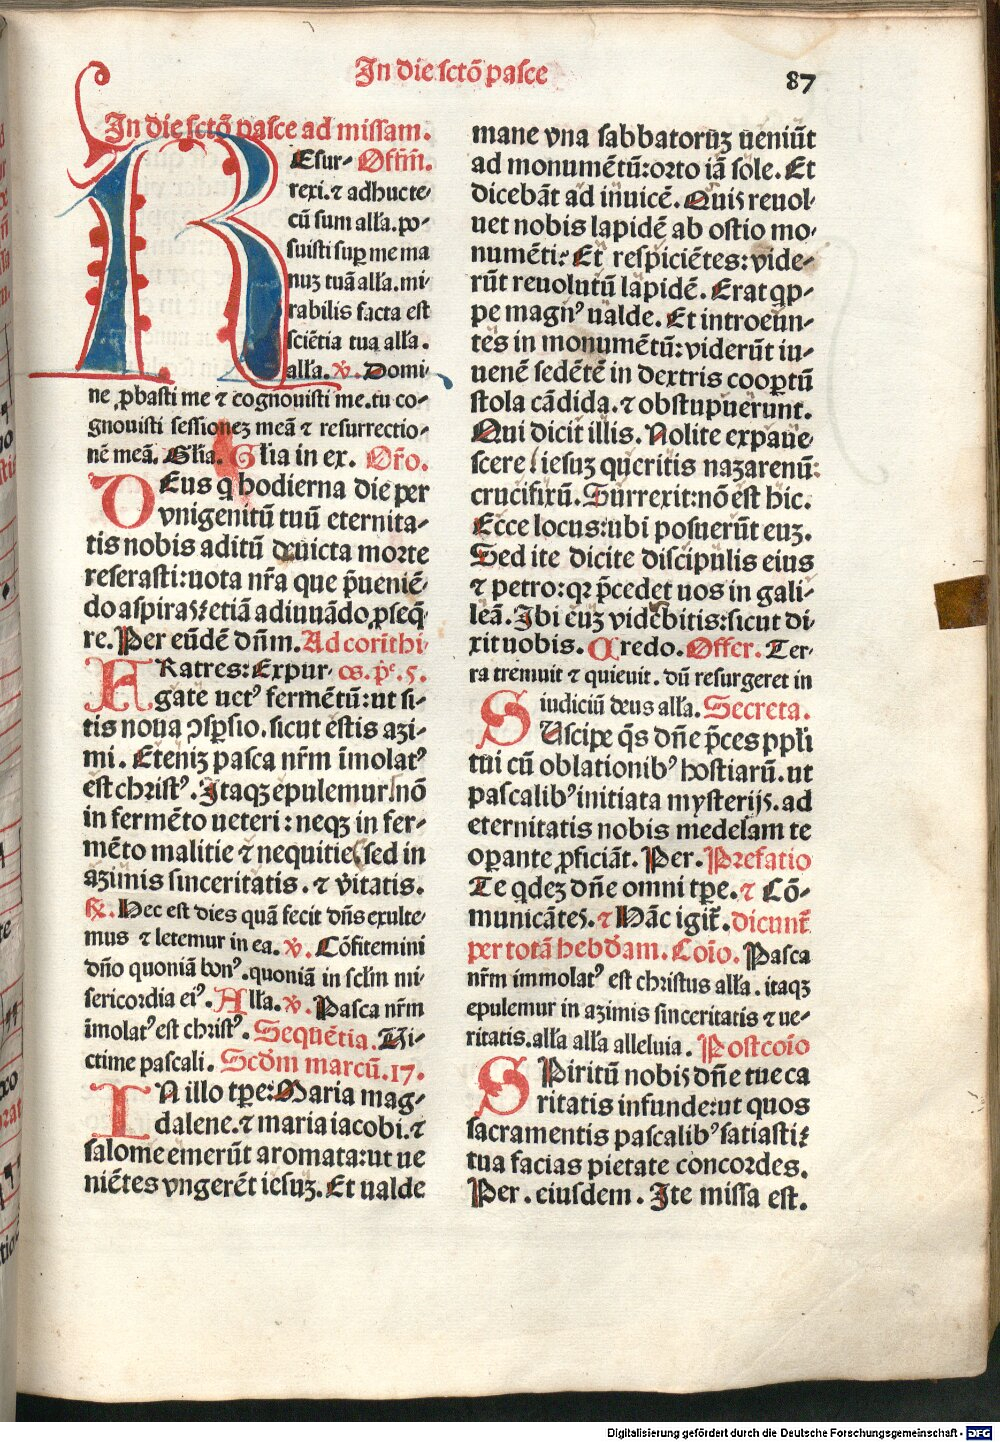 In die sctō pasce
87
In die sctō pasce ad missam.
REsur- Offm̄.
rexi. ⁊ adhuc te-
cū sum alľa. po-
suisti suꝑ me ma
nuʒ tuā alľa. mi-
rabilis facta est
sciētia tua alľa.
alľa. v̄. Domi-
ne ꝓbasti me ⁊ cognouisti me. tu co-
gnouisti sessioneʒ meā ⁊ resurrectio-
nē meā. Glia. Glia in ex. Or̄o.
DEus q hodierna die per
vnigenitū tuū eternita-
tis nobis aditū deuicta morte
reserasti: uota nr̄a que p̄ueniē-
do aspiras: etiā adiuuādo ꝓseq̄-
re. Per eūdē dn̄m. Ad corinthi
FRatres: Expur- os. p.ͤ 5.
gate uetꝰ fermētū: ut si-
tis noua ꝯsꝑsio. sicut estis azi-
mi. Eteniʒ pasca nr̄m īmolatꝰ
est christꝰ. Itaqʒ epulemur: nō
in fermēto ueteri: neqʒ in fer-
mēto malitie ⁊ nequitie: sed in
azimis sinceritatis. ⁊ v̄itatis.
℟. Hec est dies quā fecit dn̄s exulte-
mus ⁊ letemur in ea. v̄. Cōfitemini
dn̄o quoniā bonꝰ. quoniā in scl̄m mi-
sericordia eiꝰ. Alľa. v̄. Pasca nr̄m
īmolatꝰ est christꝰ. Sequētia. Ui-
ctime pascali. Scd̄m marcū. 17.
IN illo tꝑe: Maria mag-
dalene. ⁊ maria iacobi. ⁊
salome emerūt aromata: ut ue
niētes vngerēt iesuʒ. Et ualde
mane vna sabbatoruʒ ueniūt
ad monumētū: orto iā sole. Et
dicebāt ad inuicē. Quis reuol-
uet nobis lapidē ab ostio mo-
numēti: Et respiciētes: vide-
rūt reuolutū lapidē. Erat qp-
pe magnꝰ ualde. Et introeūn-
tes in monumētū: viderūt iu-
uenē sedētē in dextris cooꝑtū
stola cādida. ⁊ obstupuerunt.
Qui dicit illis. Nolite expaue-
scere: iesuʒ queritis nazarenū:
crucifixū. Surrexit: nō est hic.
Ecce locus: ubi posuerūt euʒ.
Sed ite dicite discipulis eius
⁊ petro: qꝛ p̄cedet uos in gali-
leā. Ibi euʒ videbitis: sicut di-
xit uobis. Credo. Offer. Ter-
ra tremuit ⁊ quieuit. dū resurgeret in
iudiciū deus alľa. Secreta.
SUscipe q̄s dn̄e p̄ces ppľi
tui cū oblationibꝰ hostiarū. ut
pascalibꝰ initiata mysterijs. ad
eternitatis nobis medelam te
oꝑante ꝓficiāt. Per. Prefatio
Te qdeʒ dn̄e omni tꝑe. ⁊ Cō-
municātes. ⁊ Hāc igit̄. dicunt̄
per totā hebd̄am. Coīo. Pasca
nr̄m immolatꝰ est christus alľa. itaqʒ
epulemur in azimis sinceritatis ⁊ ue-
ritatis. alľa alľa alleluia. Postcoīo
SPiritū nobis dn̄e tue ca
ritatis infunde: ut quos
sacramentis pascalibꝰ satiasti:
tua facias pietate concordes.
Per. eiusdem. Ite missa est.
Digitalisierung gefördert durch die Deutsche Forschungsgemeinschaft - DFG